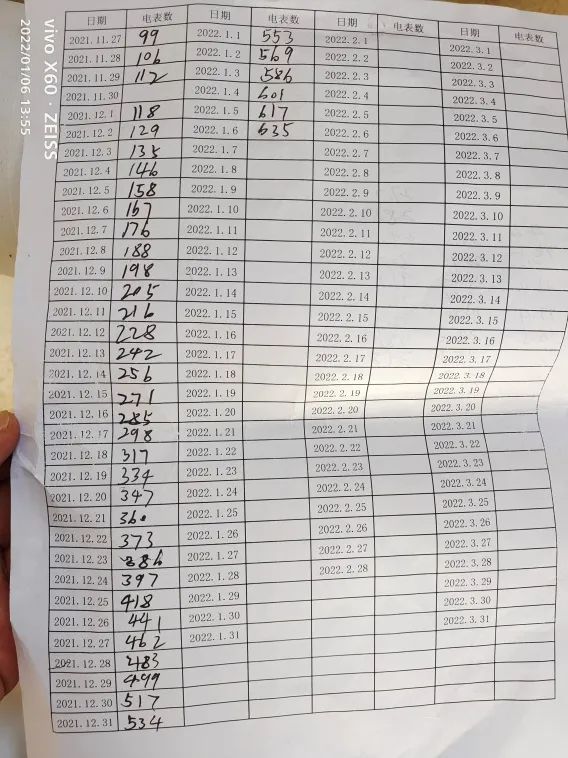 日期 电表数 日期 电表数 日期 电表数 日期 电表数
2021.11.27 99 2022.1.1 553 2022.2.1 2022.3.1
2021.11.28 106 2022.1.2 569 2022.2.2 2022.3.2
2021.11.29 112 2022.1.3 586 2022.2.3 2022.3.3
2021.11.30 2022.1.4 601 2022.2.4 2022.3.4
2021.12.1 118 2022.1.5 617 2022.2.5 2022.3.5
2021.12.2 129 2022.1.6 635 2022.2.6 2022.3.6
2021.12.3 135 2022.1.7 2022.2.7 2022.3.7
2021.12.4 146 2022.1.8 2022.2.8 2022.3.8
2021.12.5 158 2022.1.9 2022.2.9 2022.3.9
2021.12.6 167 2022.1.10 2022.2.10 2022.3.10
2021.12.7 176 2022.1.11 2022.2.11 2022.3.11
2021.12.8 188 2022.1.12 2022.2.12 2022.3.12
2021.12.9 198 2022.1.13 2022.2.13 2022.3.13
2021.12.10 205 2022.1.14 2022.2.14 2022.3.14
2021.12.11 216 2022.1.15 2022.2.15 2022.3.15
2021.12.12 228 2022.1.16 2022.2.16 2022.3.16
2021.12.13 242 2022.1.17 2022.2.17 2022.3.17
2021.12.14 256 2022.1.18 2022.2.18 2022.3.18
2021.12.15 271 2022.1.19 2022.2.19 2022.3.19
2021.12.16 285 2022.1.20 2022.2.20 2022.3.20
2021.12.17 298 2022.1.21 2022.2.21 2022.3.21
2021.12.18 317 2022.1.22 2022.2.22 2022.3.22
2021.12.19 334 2022.1.23 2022.2.23 2022.3.23
2021.12.20 347 2022.1.24 2022.2.24 2022.3.24
2021.12.21 360 2022.1.25 2022.2.25 2022.3.25
2021.12.22 373 2022.1.26 2022.2.26 2022.3.26
2021.12.23 386 2022.1.27 2022.2.27 2022.3.27
2021.12.24 397 2022.1.28 2022.2.28 2022.3.28
2021.12.25 418 2022.1.29 2022.3.29
2021.12.26 441 2022.1.30 2022.3.30
2021.12.27 462 2022.1.31 2022.3.31
2021.12.28 483
2021.12.29 499
2021.12.30 517
2021.12.31 534
vivo X60 · ZEISS
2022/01/06 13:55